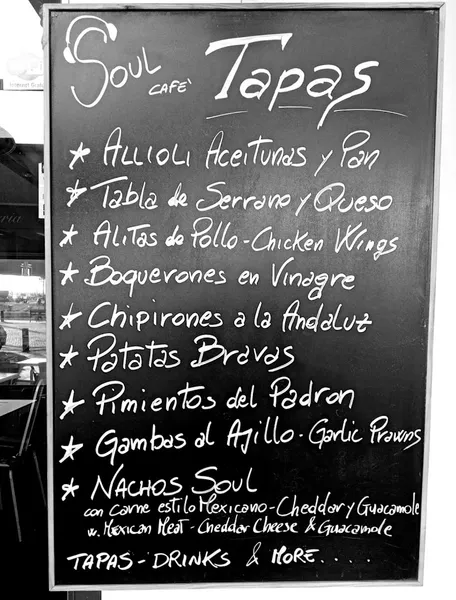 SOUL
CAFÈ
Tapas
* ALLIOLI Aceitunas y Pan
* Tabla de Serrano y Queso
* Alitas de Pollo - Chicken Wings
* Boquerones en Vinagre
* Chipirones a la Andaluz
* Patatas Bravas
* Pimientos del Padron
* Gambas al Ajillo - Garlic Prawns
* NACHOS SOUL
con Carne estilo Mexicano - Cheddar y Guacamole
w. Mexican Meat - Cheddar Cheese & Guacamole
TAPAS - DRINKS & MORE....